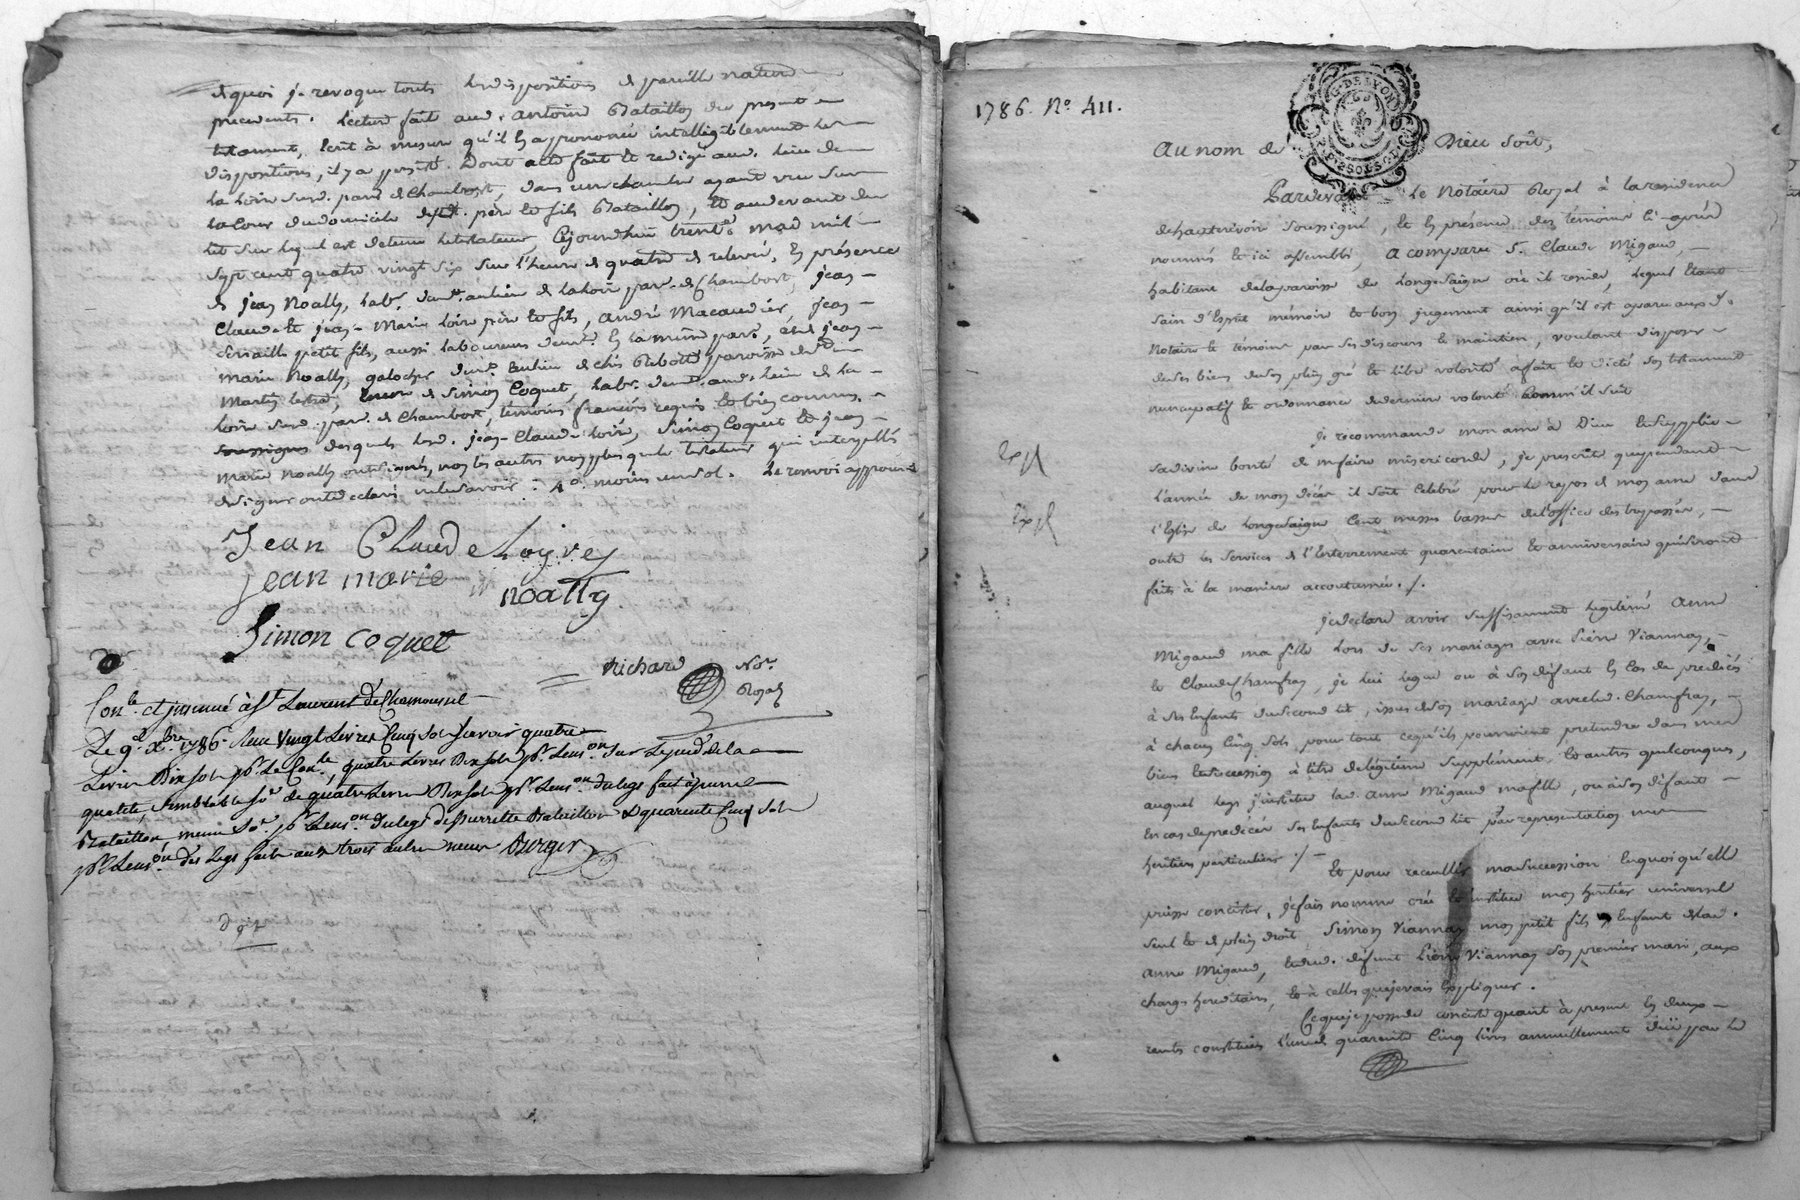 et quoi je revoque touts les dispositions de pareille nature
precedents. Lecture faite aud. antoine Bataillon du present
testament, Ecrit à mesure qu'il En a prononcé intelligiblement les
dispositions, il y a persisté. Dont acte fait et redigé aud. lieu de
la loire susd. paroisse de Chambost, dans une chambre ayant vue sur
la Cour du domicile desd. père et fils Bataillon, et audevant du
lit sur lequel est detenu le testateur, Cejourdhui trente mai mil
sept cent quatre vingt six sur l'heure de quatre de relevée, En présence
de jean Noally, labr. demt. au lieu de la loire par. de Chambost, jean
Claude et jean-Marie loire père et fils, andré Macaudier, jean
petit fils, aussi laboureurs demt. En la même par., et de jean
Marie Noally, galocher demt. au lieu de chés Rebotte paroisse de St
Martin lestra, Encore de Simon Coquet, labr. demt. aud. lieu de la
loire susd. par. de Chambost, témoins françois requis et bien connus,
soussignés desquels lesd. jean-Claude loire, Simon Coquet et jean
Marie Noally ont signés, non les autres non plus que le testateur qui interpellés
de signer ont declaré ne le savoir. Le renvoi approuvé
Jean Claude Loyrey
Jean marie noally
Simon coquet
Richard Nore.
Royal
Conlé. et insinué à St Laurent de Chamousset
Le 9e. Xbre. 1786. Reçu Vingt Livres Cinq Sols Savoir quatre
Livres Dix sols pr. Le Conle., quatre Livres Dix sols pr. Linson. sur Le pied de la
qualité, Semblable Se. de quatre Livres Dix sols pr. Linson. du legs fait à pierre
Bataillon meme Se. pr. Linson. du legs de pierrette Bataillon & quarante Cinq Sols
pr. Linson. des legs faits aux trois autres Berger
1786. No. 411.
G. DE LYON
Au nom de Dieu soit,
Pardevant le Notaire Royal à la residence
de hauterivoire soussigné, et En présence des témoins ci-après
nommés et ici assemblés, a comparu Sr. Claude Migaud,
habitant de la paroisse de Longessaigne où il reside, lequel étant
sain d'Esprit mémoire et bon jugement ainsi qu'il est aparu aux d.
Notaire et témoins par ses discours et maintien, voulant disposer
de ses biens de son plein gré et libre volonté a fait et dicté son testament
nuncupatif et ordonnance de derniere volonté Comm'il suit
Je recommande mon ame à Dieu Et supplie
sa divine bonté de me faire misericorde, je prescrits que pendant
l'année de mon décès il soit Celebré pour le repos de mon ame dans
l'Eglise de Longessaigne Cent messes basses de l'office des trepassés,
outre les services de l'Enterrement quarantain et anniversaire qui seront
faits à la maniere accoutumée. /.
Expl
Expl
Je declare avoir suffisament legitimé anne
Migaud ma fille lors de ses mariages avec pierre Viannay,
et Claude Chamfray, je lui legue ou à son défaut En Cas de predécès
à ses Enfants du second lit, issus de son mariage avec led. Chamfray,
à chacun Cinq Sols, pour tout ce qu'ils pourroient pretendre dans mes
biens et succession à titre de légitime supplément, et autres quelconques,
auquel legs j'institue lad. anne Migaud ma fille, ou à son défaut
En cas de predécès ses Enfants du second lit par representation mes
heritiers particuliers :/-
Et pour recueillir ma succession En quoi qu'elle
puisse concister, je fais nomme crée et institue mon heritier universel
seul et de plein droit Simon Viannay mon petit fils Enfant de lad.
anne Migaud, et dud. défunt pierre Viannay son premier mari, aux
charges hereditaires, et à celles que je vais Expliquer.
Ce que je possede conciste quant à present En deux
rentes constituées l'une de quarante Cinq livres annuellement due par le